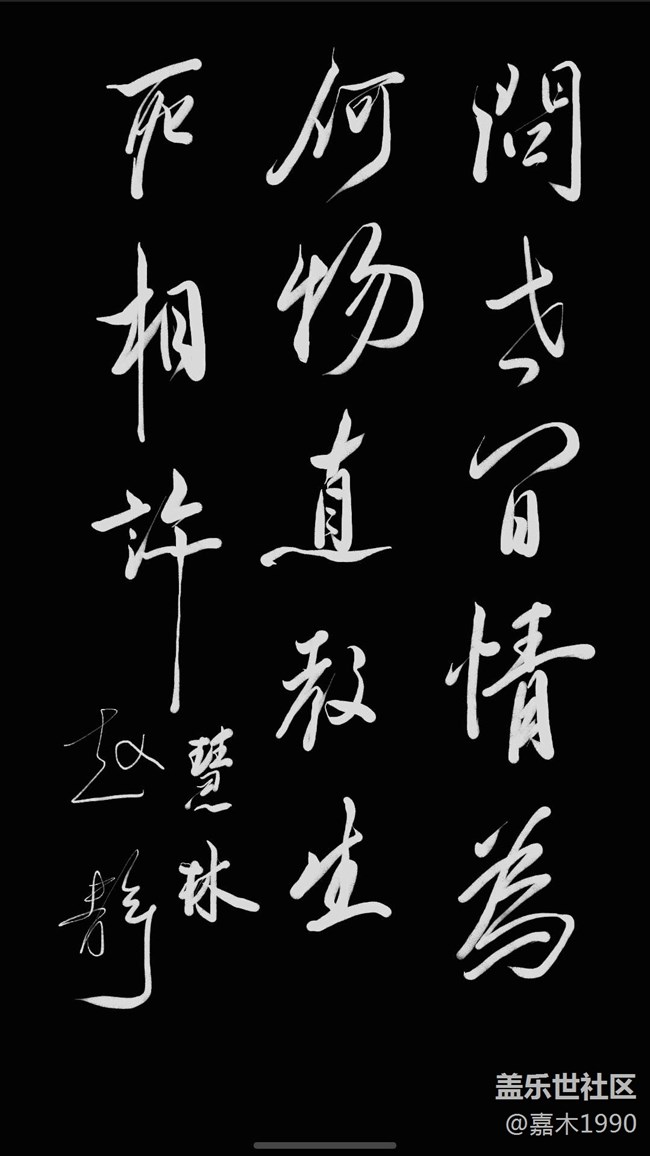 問世间情為
何物直教生
死相許
慧林
赵静
盖乐世社区
@嘉木1990